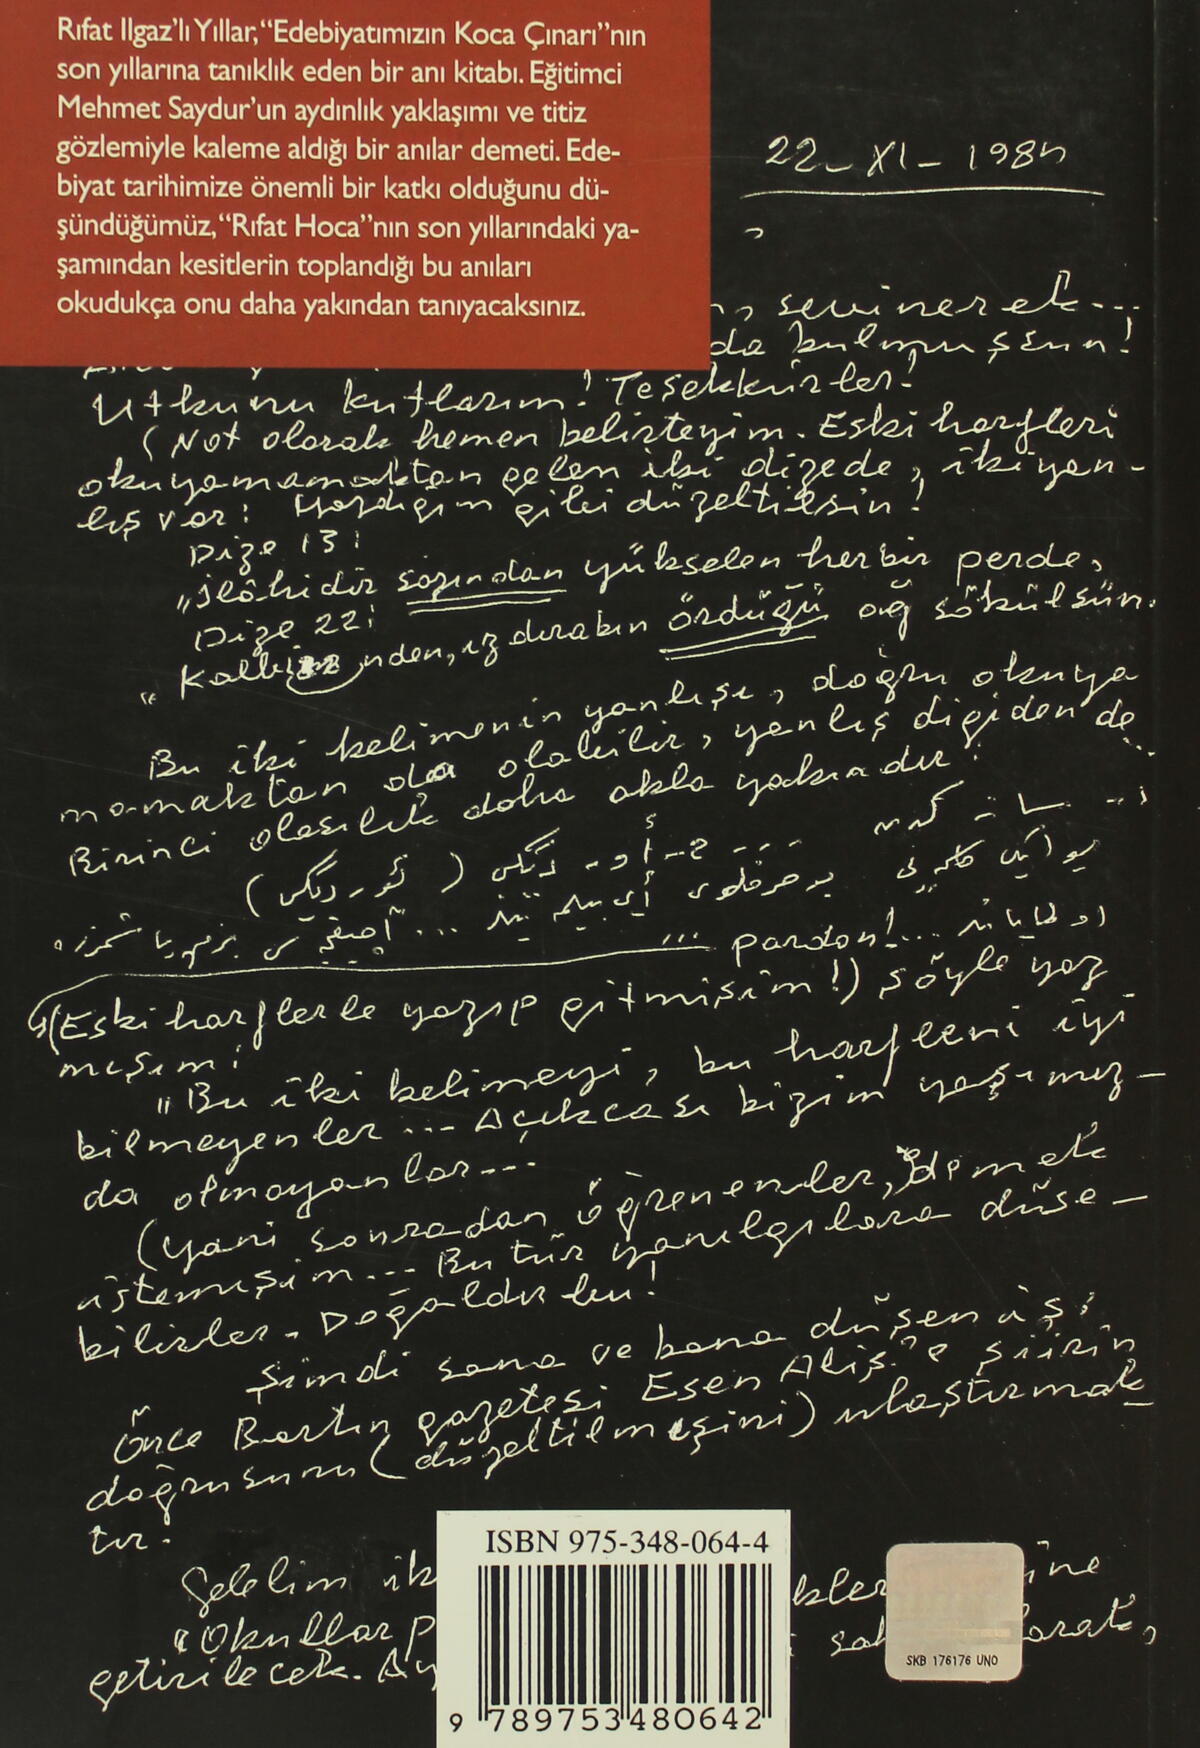 Rıfat Ilgaz’lı Yıllar, “Edebiyatımızın Koca Çınarı”nın
son yıllarına tanıklık eden bir anı kitabı. Eğitimci
Mehmet Saydur’un aydınlık yaklaşımı ve titiz
gözlemiyle kaleme aldığı bir anılar demeti. Ede-
biyat tarihimize önemli bir katkı olduğunu dü-
şündüğümüz, “Rıfat Hoca”nın son yıllarındaki ya-
şamından kesitlerin toplandığı bu anıları
okudukça onu daha yakından tanıyacaksınız.
22-XI-198
sevinerek...
da bulmuşsun!
Utkunu kutlarım! Teşekkürler!
(Not olarak hemen belirteyim. Eski harfleri
okuyamamaktan gelen iki dizede, iki yan-
lış var! Yazdığım gibi düzeltilsin!
Dize 13:
"İlâhidir sazından yükselen her bir perde,
Dize 22:
"Kalbinden, ızdırabın ördüğü ağ sökülsün.
Bu iki kelimenin yanlışı, doğru okuya
mamaktan da olabilir, yanlış dizgiden de...
Birinci olasılık daha akla yakındır!
... pardon!...
(Eski harflerle yazıp gitmişim!) şöyle yaz
mışım:
"Bu iki kelimeyi, bu harfleri iyi
bilmeyenler... Açıkcası bizim yaşımız-
da olmayanlar...
(yani sonradan öğrenenler, demek
istemişim... Bu tür yanılgılara düşe-
bilirler. Doğaldır bu!
Şimdi sana ve bana düşen iş:
Önce Bartın gazetesi Esen Aliş'e şiirin
doğrusunu (düzeltilmişini) ulaştırmak-
tır.
Gelelim
"Okullar
getirilecek.
ISBN 975-348-064-4
9 789753 480642
SKB 176176 UNO